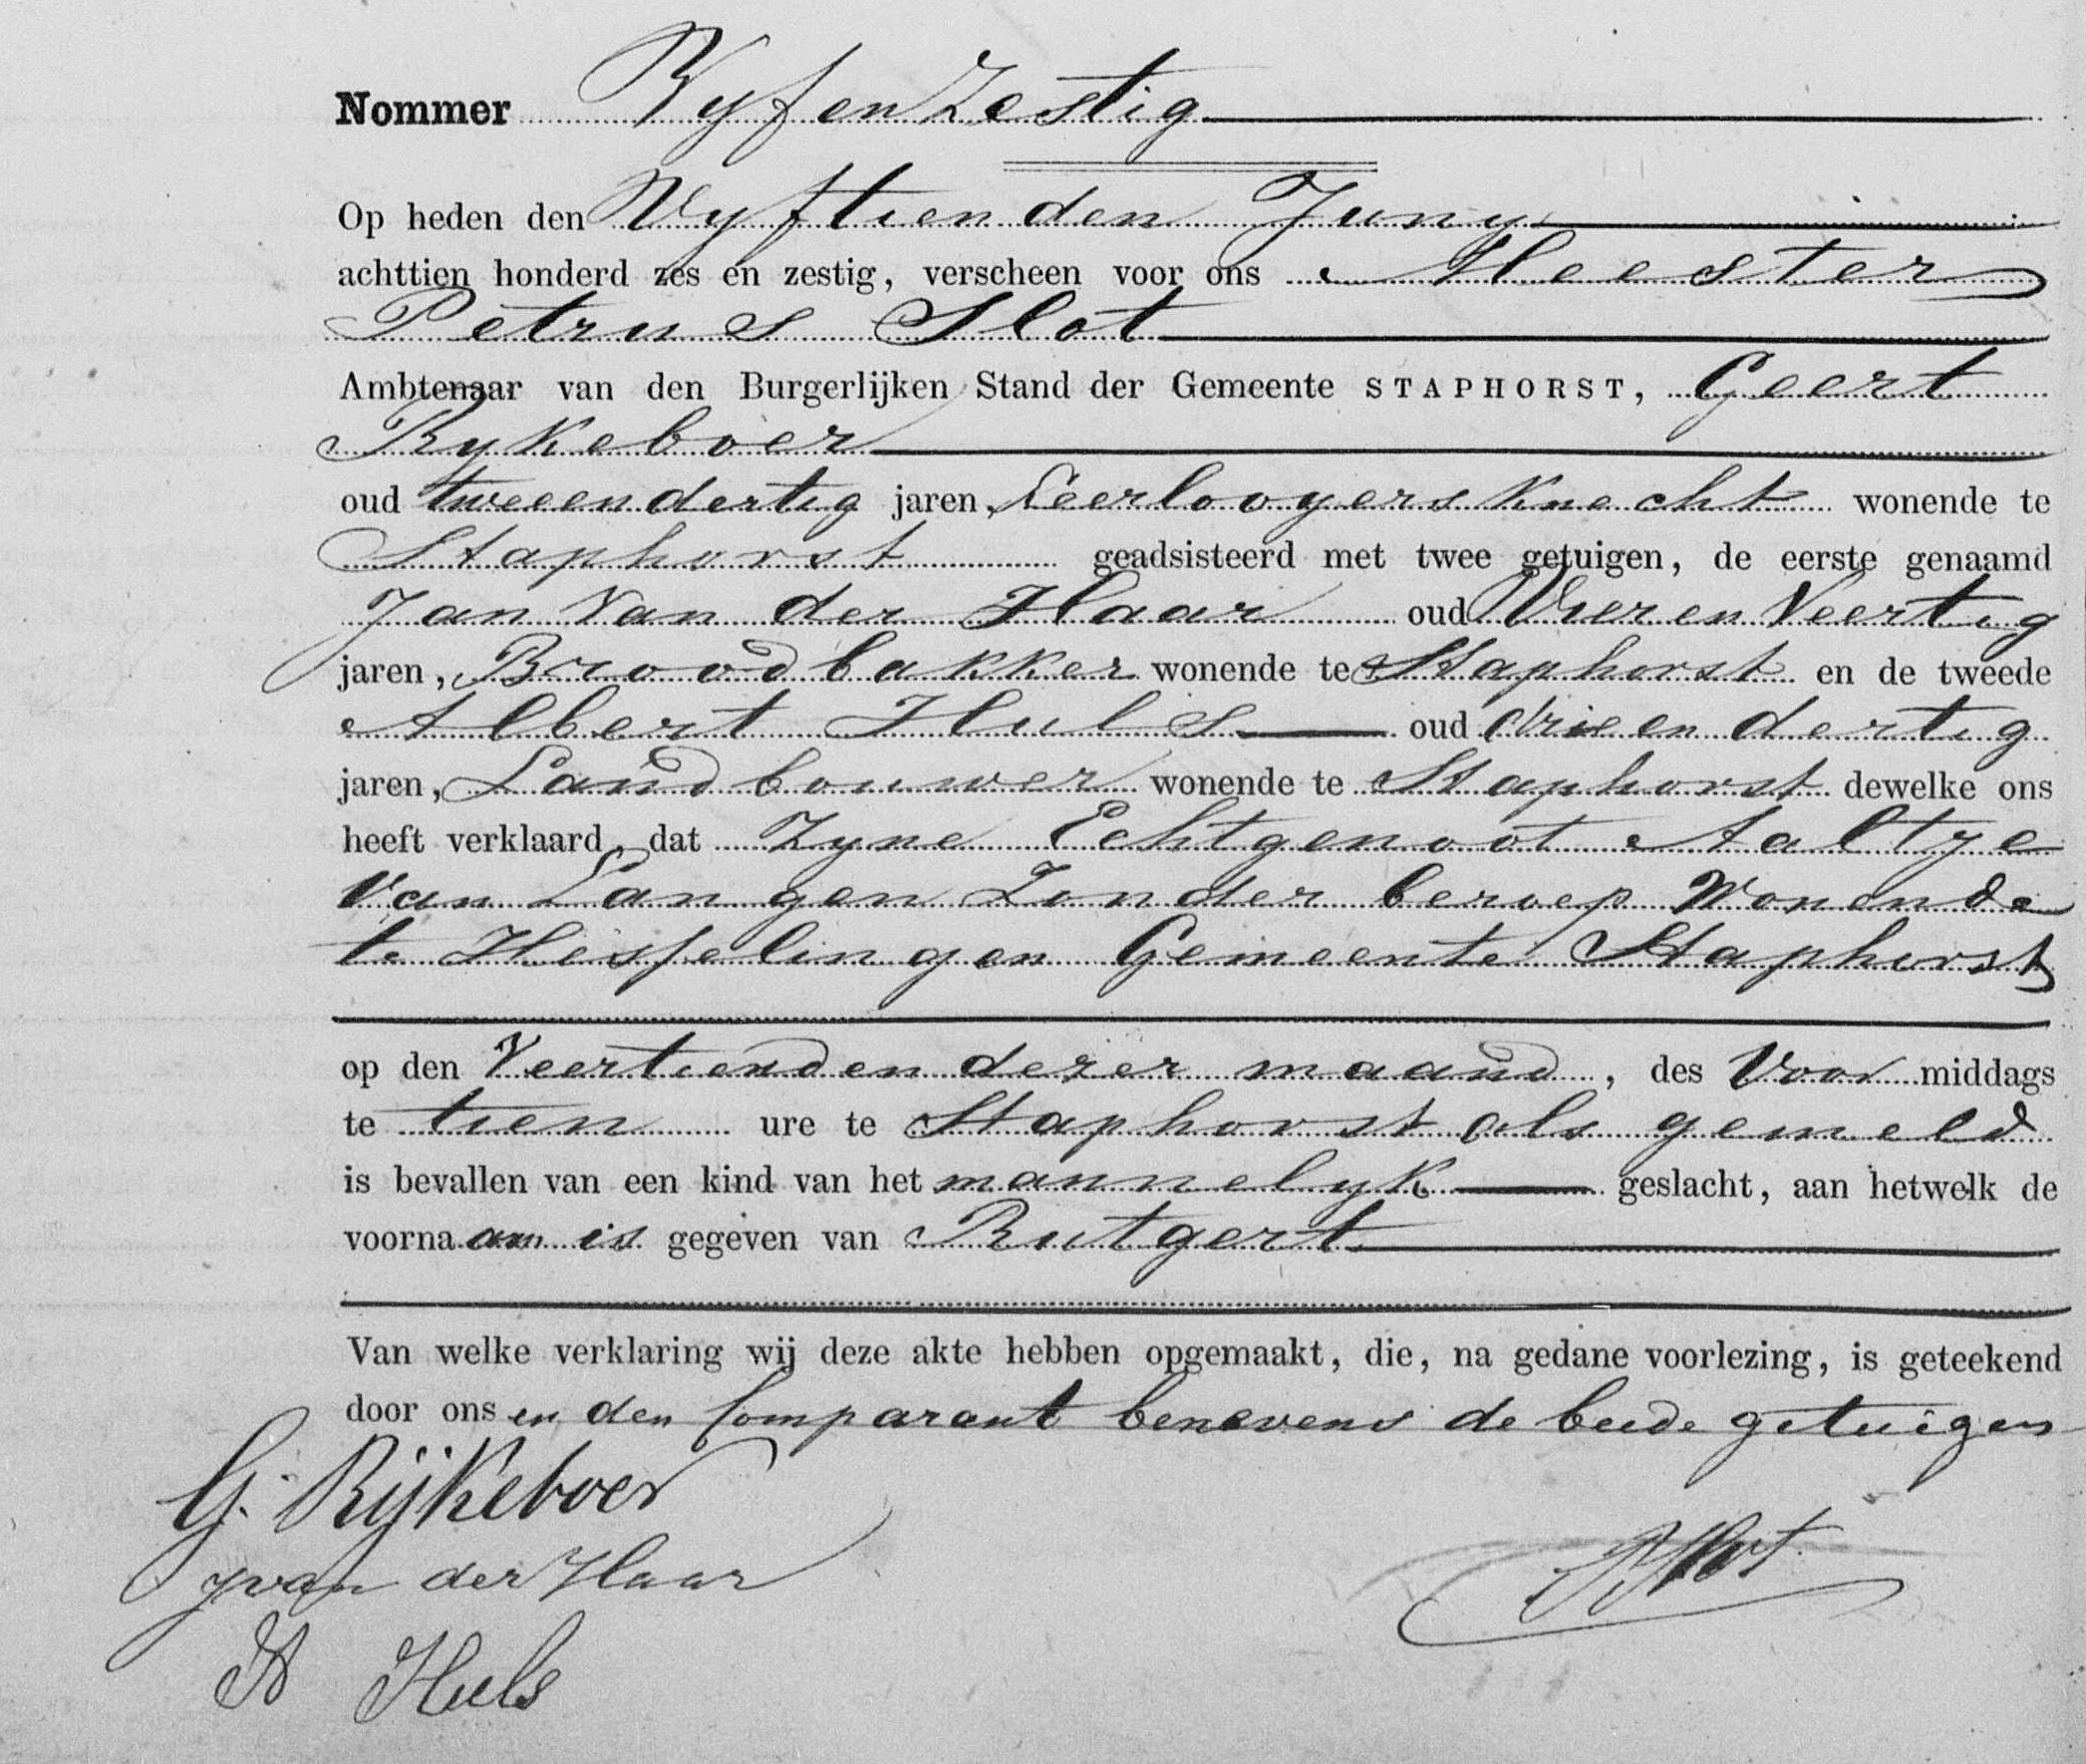 Nommer Vyfenzestig
Op heden den Vyftienden Juny
achttien honderd zes en zestig, verscheen voor ons Meester
Petrus Slot
Ambtenaar van den Burgerlijken Stand der Gemeente STAPHORST, Geert
Rykeboer
oud tweeendertig jaren, Leerlooyersknecht wonende te
Staphorst geadsisteerd met twee getuigen, de eerste genaamd
Jan van der Haar oud Vierenveertig
jaren, Broodbakker wonende te Staphorst en de tweede
Albert Huls oud drieendertig
jaren, Landbouwer wonende te Staphorst dewelke ons
heeft verklaard, dat Zyne Echtgenoot Aaltje
van Langen Zonder beroep Wonende
te Hesselingen Gemeente Staphorst
op den Veertienden dezer maand, des Voormiddags
te tien ure te Staphorst als gemeld
is bevallen van een kind van het mannelyk geslacht, aan hetwelk de
voornaam is gegeven van Rutgert
Van welke verklaring wij deze akte hebben opgemaakt, die, na gedane voorlezing, is geteekend
door ons en den Comparant benevens de beide getuigen
G. Rijkeboer
J van der Haar
PSlot
A Huls